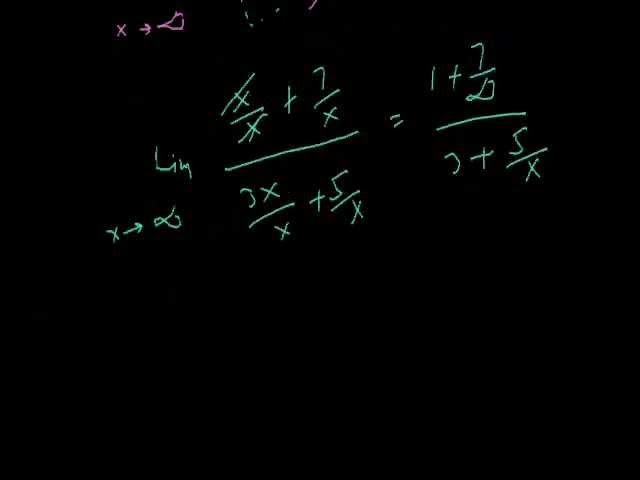 x → ∞
Lim x → ∞ (x/x + 7/x) / (3x/x + 5/x) = (1 + 7/∞) / (3 + 5/x)